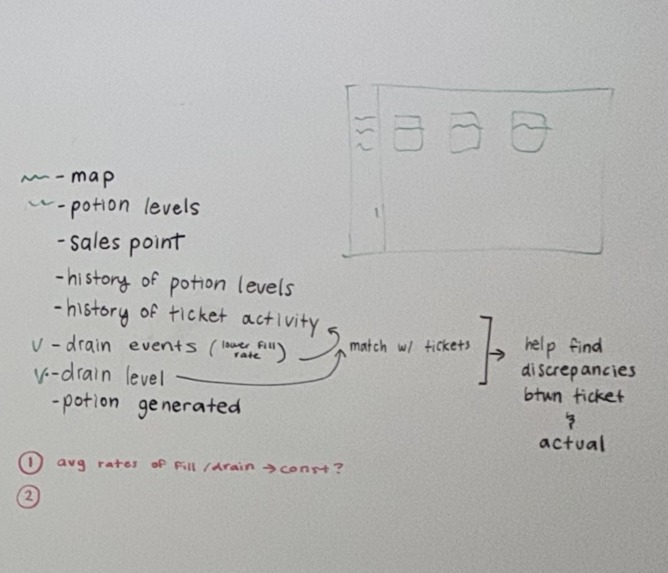 - map
- potion levels
- sales point
- history of potion levels
- history of ticket activity
- drain events (lower fill rate)
match w/ tickets
- drain level
- potion generated
help find
discrepancies
btwn ticket
&
actual
① avg rates of fill/drain → const?
②